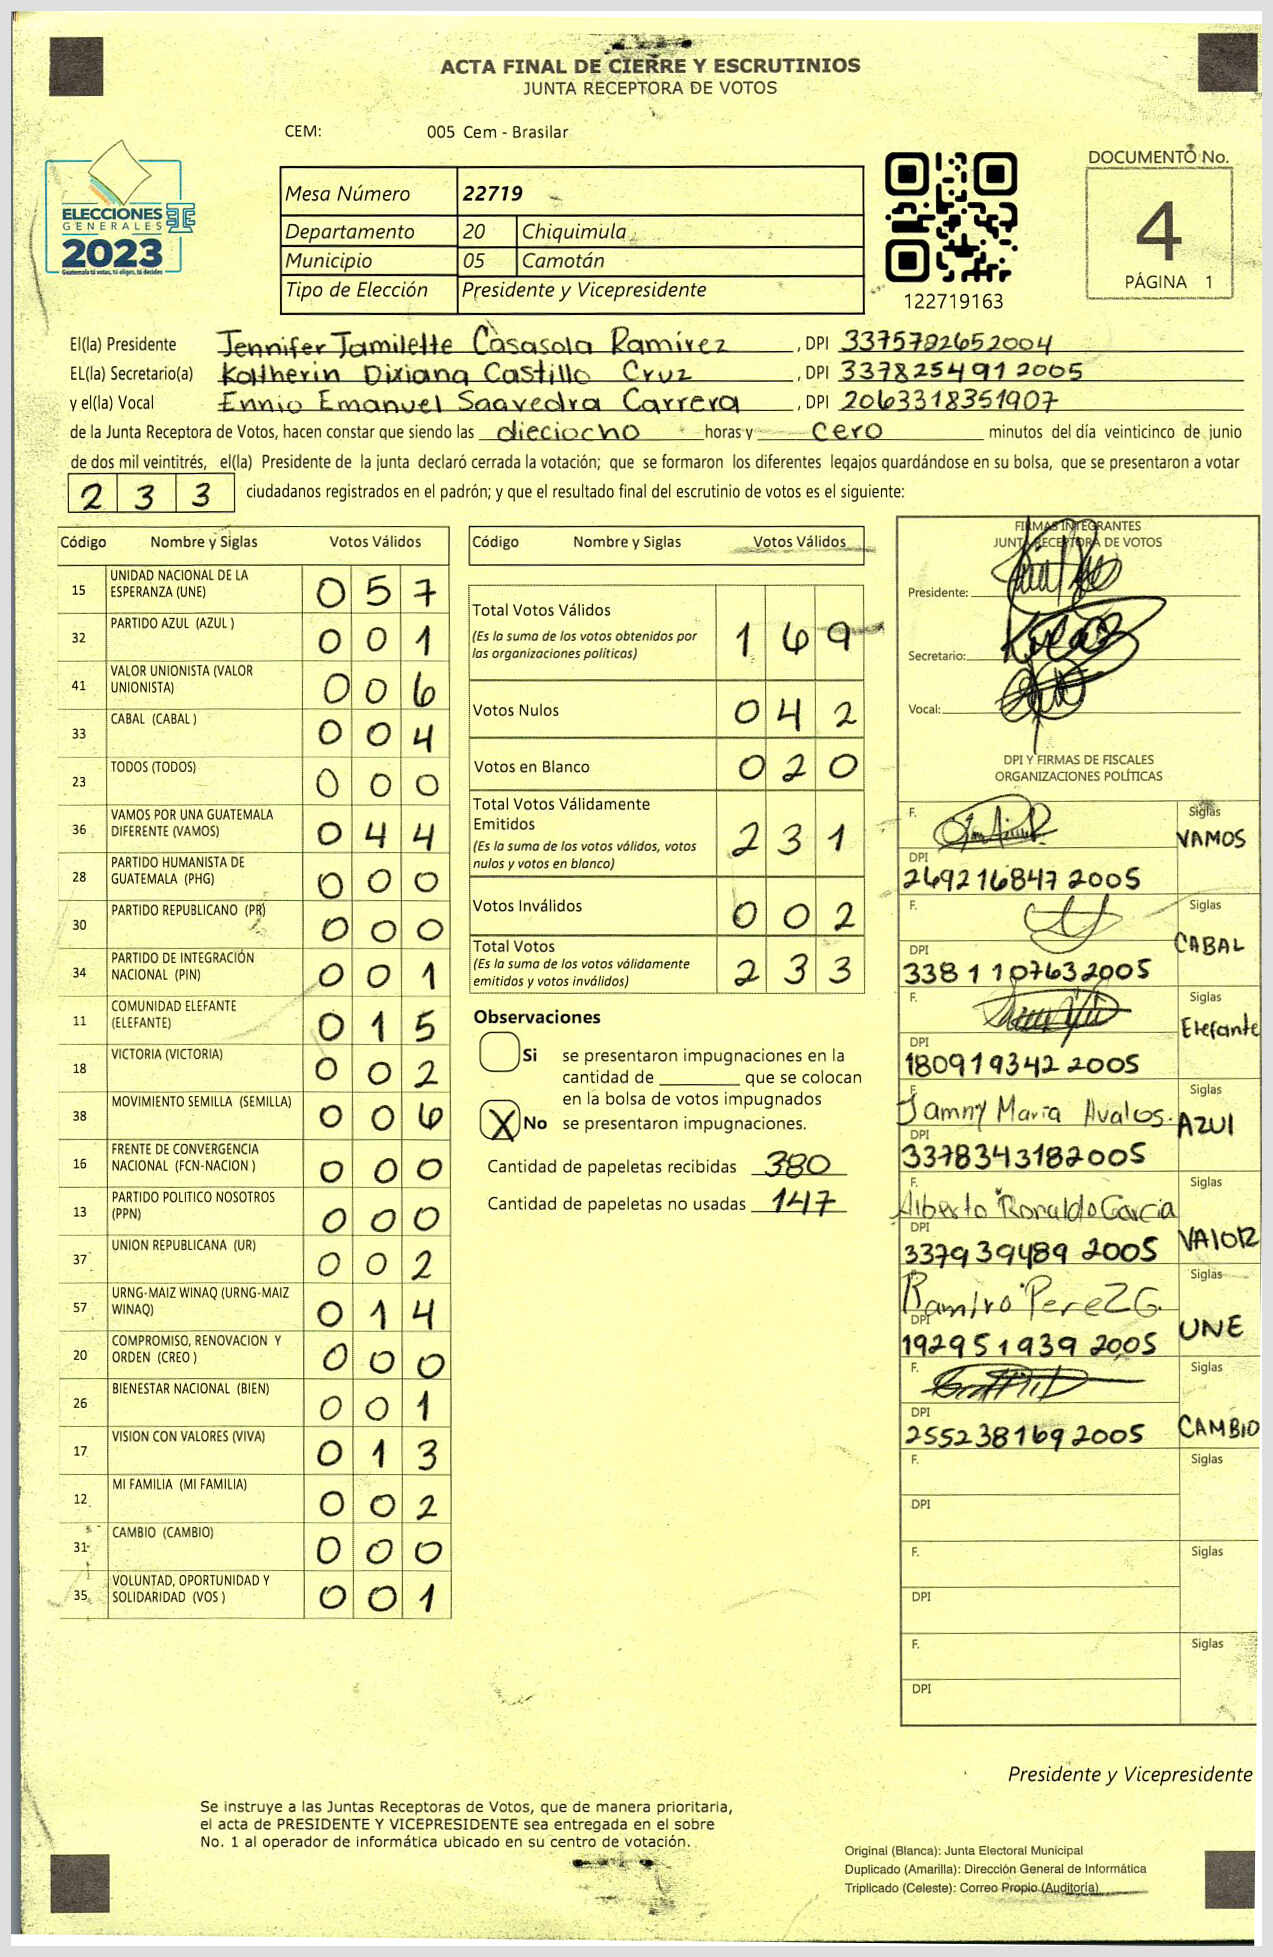 ACTA FINAL DE CIERRE Y ESCRUTINIOS
JUNTA RECEPTORA DE VOTOS
CEM: 005 Cem - Brasilar
ELECCIONES
GENERALES
2023
Guatemala tú votas, tú eliges, tú decides
Mesa Número 22719
Departamento 20 Chiquimula
Municipio 05 Camotán
Tipo de Elección Presidente y Vicepresidente
122719163
DOCUMENTO No.
4
PÁGINA 1
El(la) Presidente Jennifer Jamilette Casasola Ramírez , DPI 3375782652004
EL(la) Secretario(a) Katherin Dixiana Castillo Cruz , DPI 3378254912005
y el(la) Vocal Ennio Emanuel Saavedra Carrera , DPI 2063318351907
de la Junta Receptora de Votos, hacen constar que siendo las dieciocho horas y cero minutos del día veinticinco de junio
de dos mil veintitrés, el(la) Presidente de la junta declaró cerrada la votación; que se formaron los diferentes legajos guardándose en su bolsa, que se presentaron a votar
2 3 3 ciudadanos registrados en el padrón; y que el resultado final del escrutinio de votos es el siguiente:
Código Nombre y Siglas Votos Válidos
15 UNIDAD NACIONAL DE LA ESPERANZA (UNE) 0 5 7
32 PARTIDO AZUL (AZUL ) 0 0 1
41 VALOR UNIONISTA (VALOR UNIONISTA) 0 0 6
33 CABAL (CABAL ) 0 0 4
23 TODOS (TODOS) 0 0 0
36 VAMOS POR UNA GUATEMALA DIFERENTE (VAMOS) 0 4 4
28 PARTIDO HUMANISTA DE GUATEMALA (PHG) 0 0 0
30 PARTIDO REPUBLICANO (PR) 0 0 0
34 PARTIDO DE INTEGRACIÓN NACIONAL (PIN) 0 0 1
11 COMUNIDAD ELEFANTE (ELEFANTE) 0 1 5
18 VICTORIA (VICTORIA) 0 0 2
38 MOVIMIENTO SEMILLA (SEMILLA) 0 0 6
16 FRENTE DE CONVERGENCIA NACIONAL (FCN-NACION ) 0 0 0
13 PARTIDO POLITICO NOSOTROS (PPN) 0 0 0
37 UNION REPUBLICANA (UR) 0 0 2
57 URNG-MAIZ WINAQ (URNG-MAIZ WINAQ) 0 1 4
20 COMPROMISO, RENOVACION Y ORDEN (CREO ) 0 0 0
26 BIENESTAR NACIONAL (BIEN) 0 0 1
17 VISION CON VALORES (VIVA) 0 1 3
12 MI FAMILIA (MI FAMILIA) 0 0 2
31 CAMBIO (CAMBIO) 0 0 0
35 VOLUNTAD, OPORTUNIDAD Y SOLIDARIDAD (VOS ) 0 0 1
Código Nombre y Siglas Votos Válidos
Total Votos Válidos 1 6 9
(Es la suma de los votos obtenidos por
las organizaciones políticas)
Votos Nulos 0 4 2
Votos en Blanco 0 2 0
Total Votos Válidamente
Emitidos 2 3 1
(Es la suma de los votos válidos, votos
nulos y votos en blanco)
Votos Inválidos 0 0 2
Total Votos 2 3 3
(Es la suma de los votos válidamente
emitidos y votos inválidos)
Observaciones
Si se presentaron impugnaciones en la
cantidad de ________ que se colocan
en la bolsa de votos impugnados
X No se presentaron impugnaciones.
Cantidad de papeletas recibidas 380
Cantidad de papeletas no usadas 147
FIRMAS INTEGRANTES
JUNTA RECEPTORA DE VOTOS
Presidente:
Secretario:
Vocal:
DPI Y FIRMAS DE FISCALES
ORGANIZACIONES POLÍTICAS
F. Siglas
VAMOS
DPI
269216847 2005
F. Siglas
CABAL
DPI
3381107632005
F. Siglas
Elefante
DPI
180919342 2005
F. Jamny María Avalos. AZUl
DPI
3378343182005
F. Siglas
Alberto Ronaldo Garcia
DPI
337939489 2005 VAlOR
Siglas
Ramiro Perez G.
DPI
192951939 2005 UNE
F. Siglas
DPI
255238169 2005 CAMBIO
F. Siglas
DPI
F. Siglas
DPI
F. Siglas
DPI
Presidente y Vicepresidente
Se instruye a las Juntas Receptoras de Votos, que de manera prioritaria,
el acta de PRESIDENTE Y VICEPRESIDENTE sea entregada en el sobre
No. 1 al operador de informática ubicado en su centro de votación.
Original (Blanca): Junta Electoral Municipal
Duplicado (Amarilla): Dirección General de Informática
Triplicado (Celeste): Correo Propio (Auditoría)